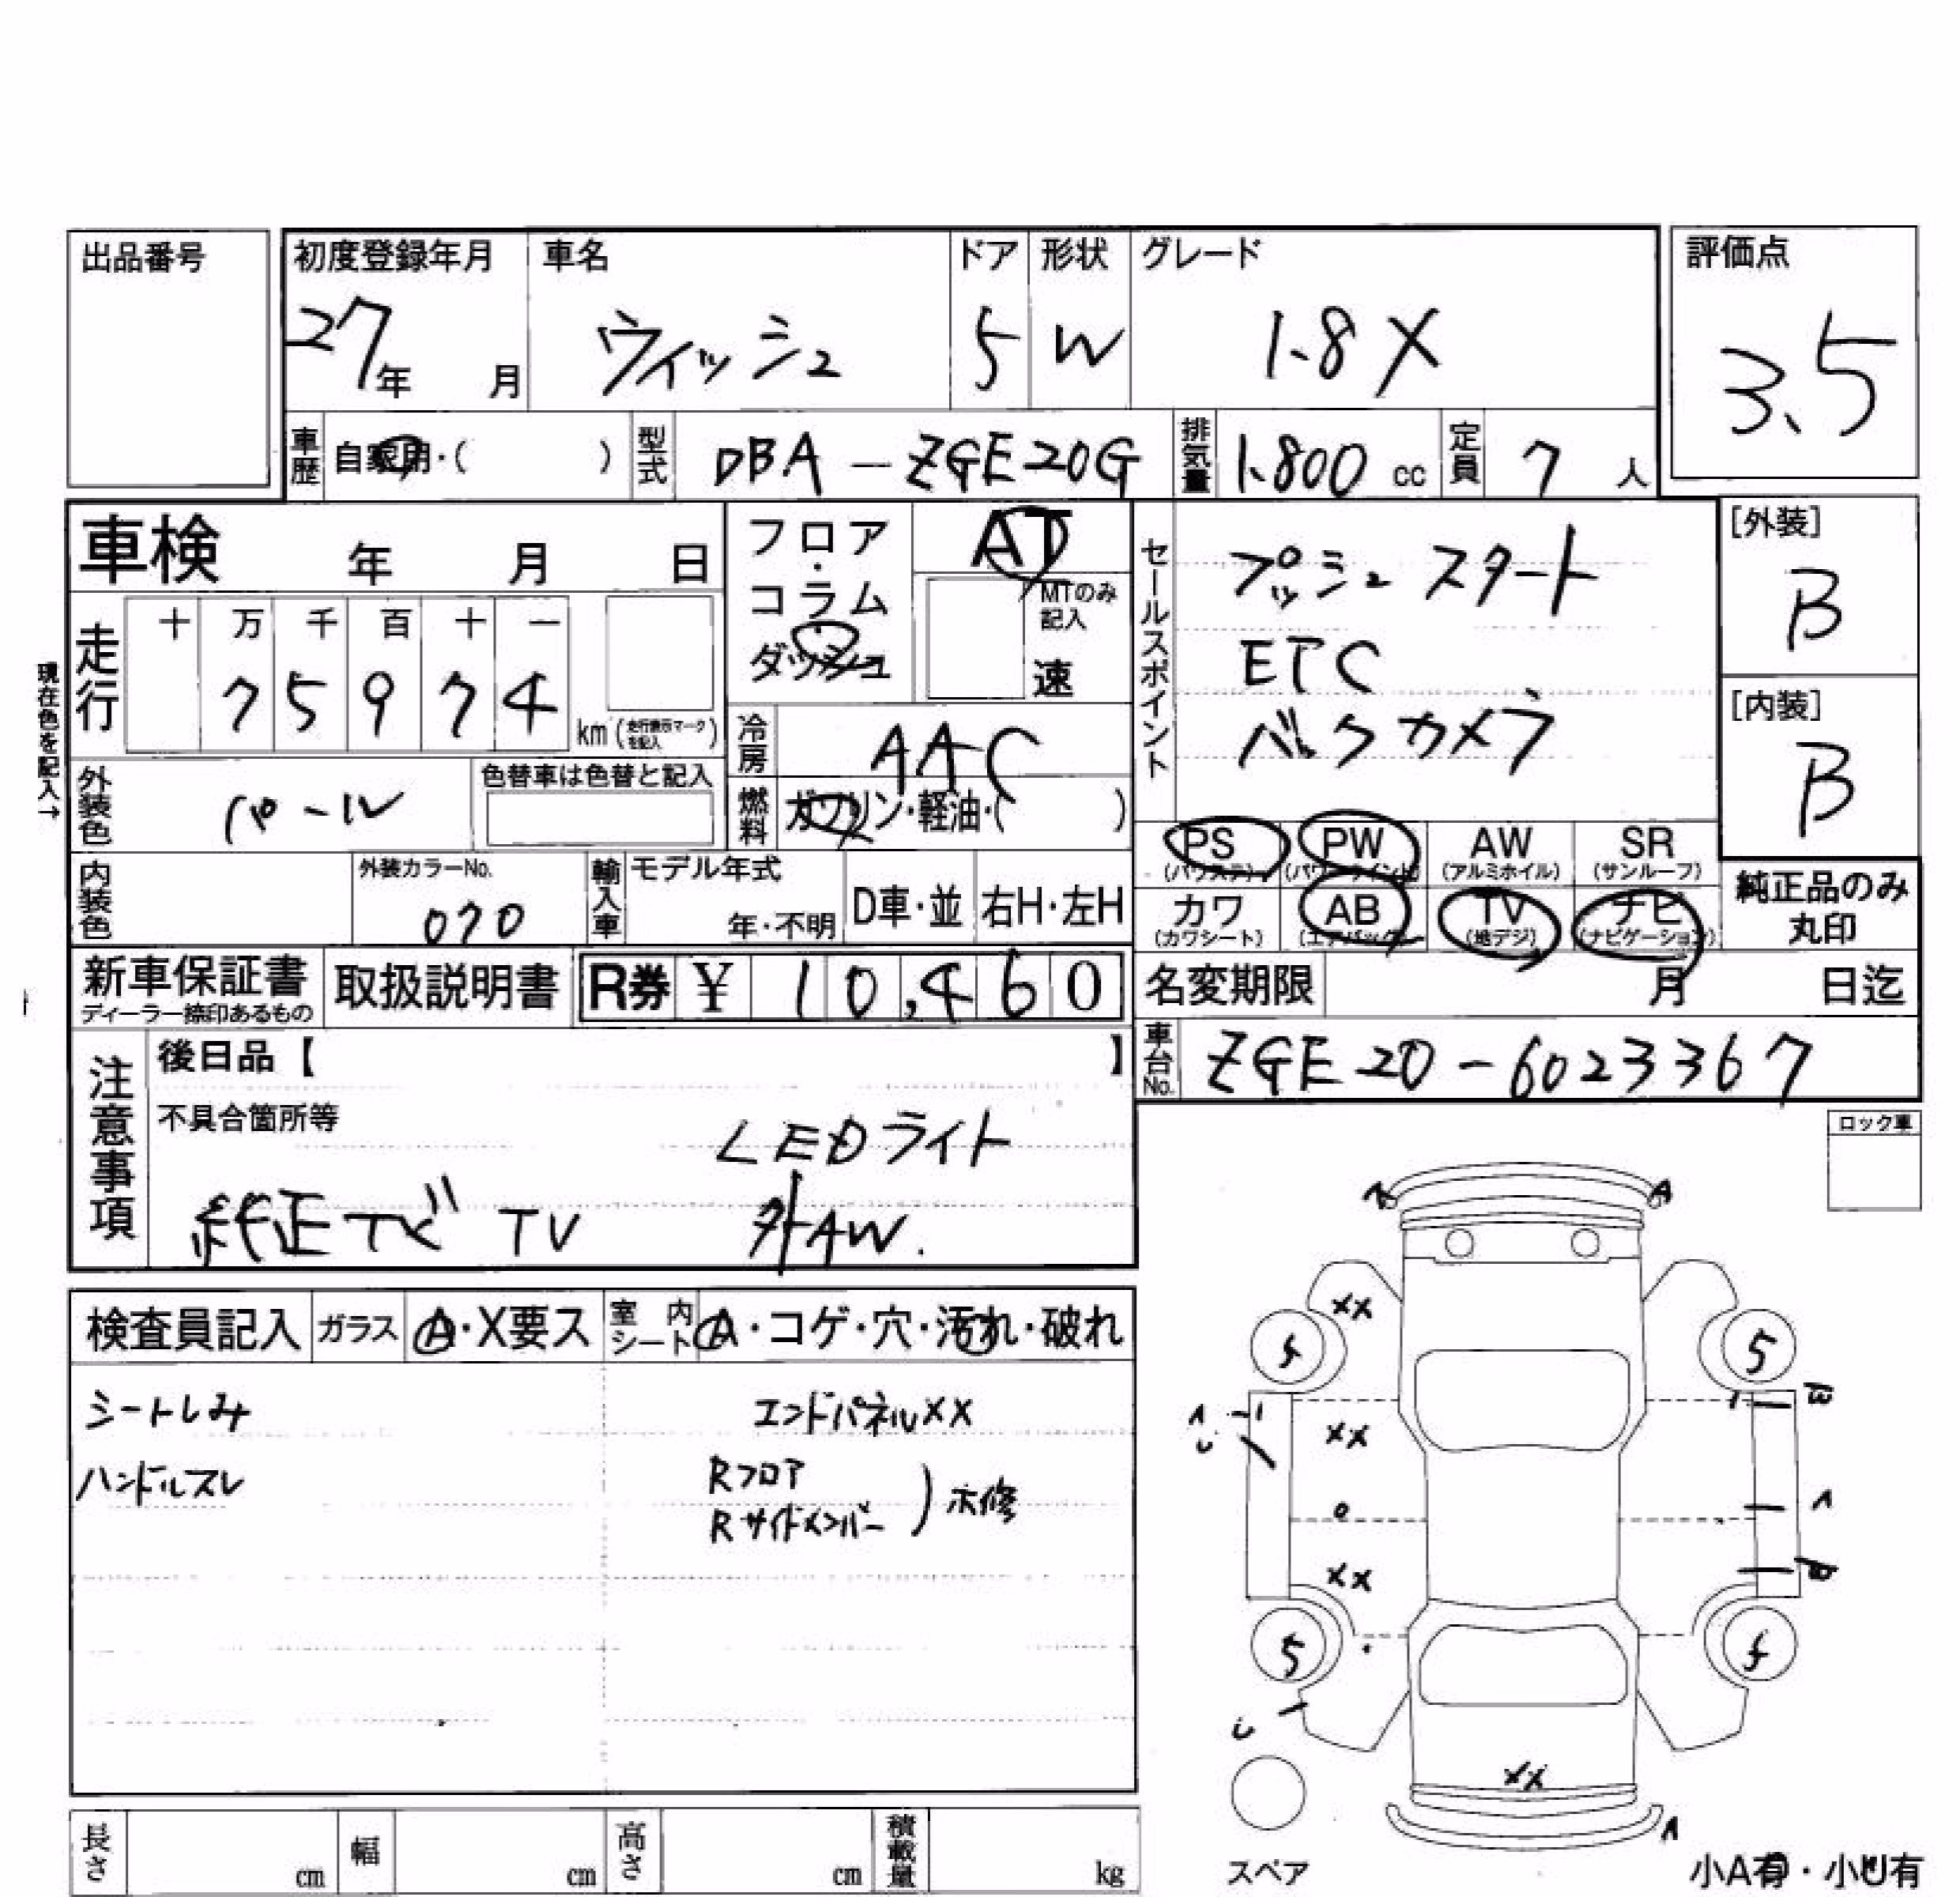 出品番号
初度登録年月 車名 ドア 形状 グレード 評価点
27年 月 ウィッシュ 5 W 1.8X 3.5
車歴 自家用・( ) 型式 DBA-ZGE20G 排気量 1.800 cc 定員 7 人
車検 年 月 日
フロア・コラム ダッシュ
AT
MTのみ記入
速
セールスポイント
プッシュスタート
ETC
バックカメラ
[外装]
B
[内装]
B
現在色を記入→
走行 十 万 千 百 十 一
7 5 9 7 4
km (走行表示マークを記入)
冷房 AAC
燃料 ガソリン・軽油・( )
外装色 パール 色替車は色替と記入
PS (パワステ) PW (パワーウインド) AW (アルミホイル) SR (サンルーフ)
カワ (カワシート) AB (エアバック) TV (地デジ) ナビ (ナビゲーション)
純正品のみ
丸印
内装色 外装カラーNo. 070 輸入車 モデル年式 年・不明 D車・並 右H・左H
新車保証書 ディーラー捺印あるもの 取扱説明書 R券 ¥ 10,460
名変期限 月 日迄
車台No. ZGE20-6023367
注意事項
後日品【 】
不具合箇所等
LEDライト
純正ナビ TV 外AW.
ロック車
検査員記入 ガラス A・X要ス 室内シート A・コゲ・穴・汚れ・破れ
シートしみ エンドパネルXX
ハンドルスレ Rフロア
Rサイドメンバー
A A
XX
5 5
A
U
XX
A
XX
5 5
U
XX
A
スペア
小A有・小U有
長さ cm 幅 cm 高さ cm 積載量 kg